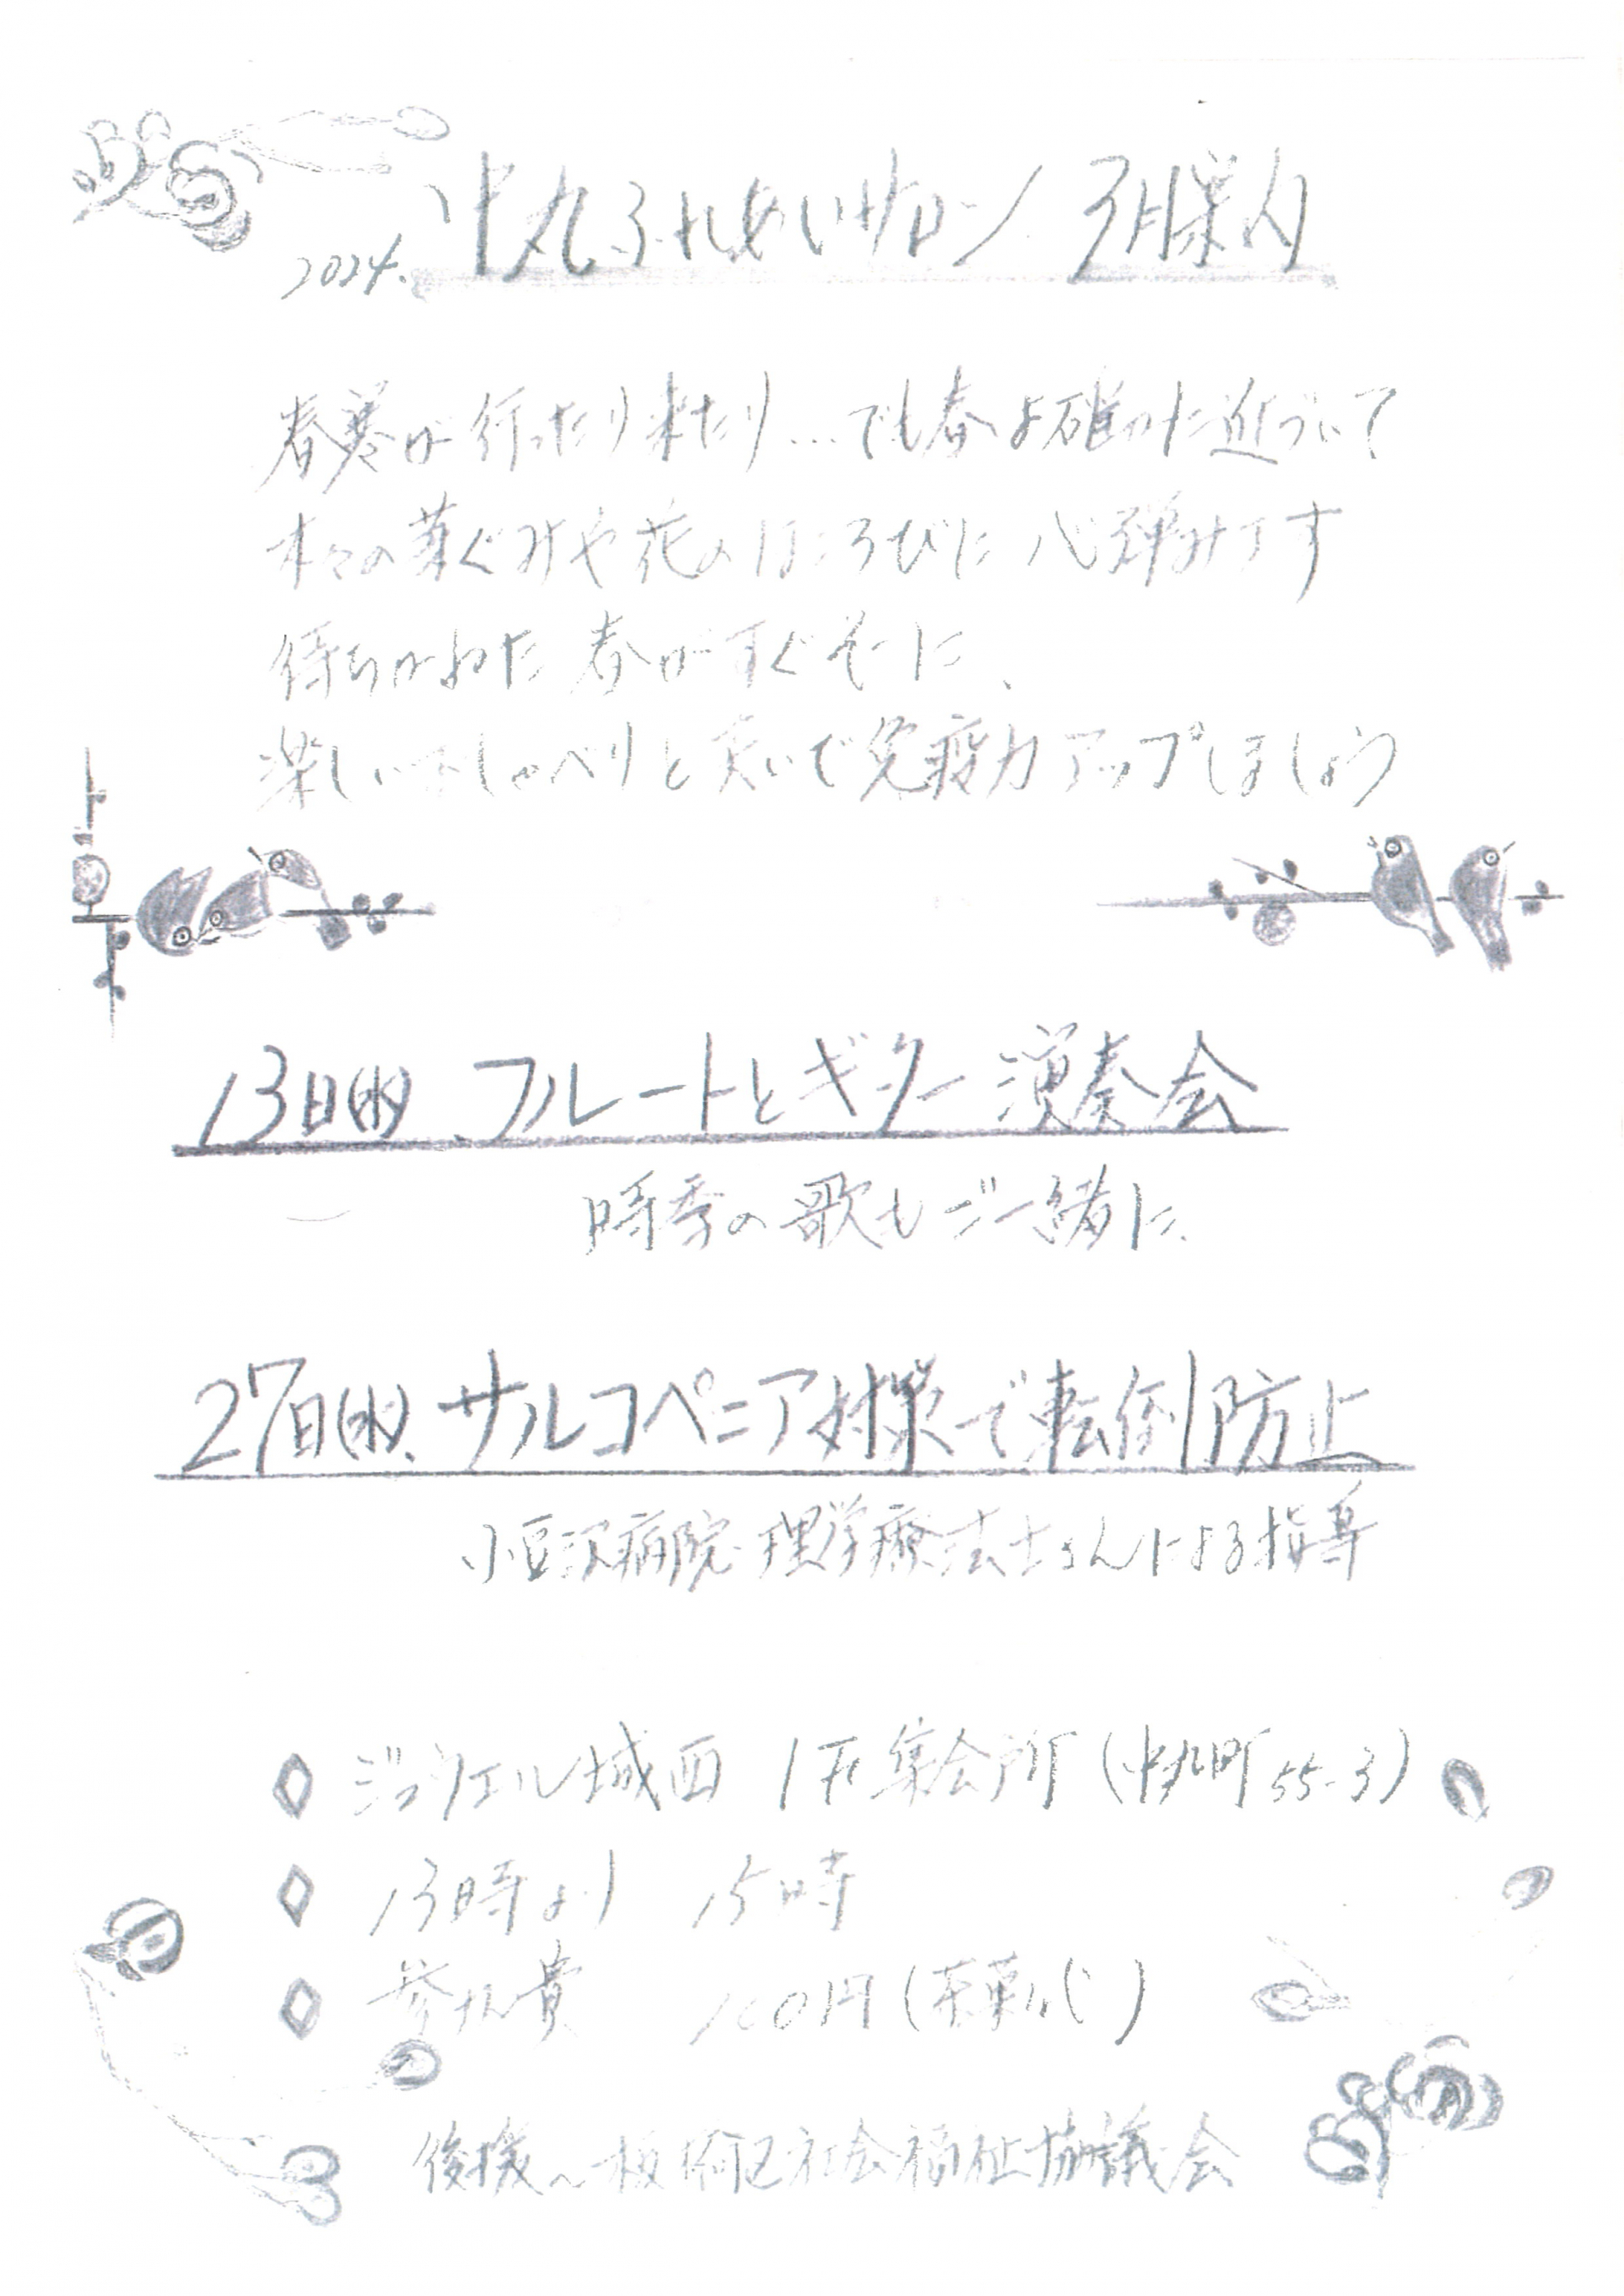 2024. 中丸ふれあいサロン 3月案内
春寒が行ったり来たり…でも春は確かに近づいて
木々の芽ぐみや花のほころびに心弾みます
待ちかねた春がすぐそこに、
楽しいおしゃべりと笑いで免疫力アップしましょう
13日(水)、フルートとギター演奏会
時季の歌もご一緒に、
27日(水)、サルコペニア対策で転倒防止
小豆沢病院 理学療法士さんによる指導
◇ ジョウエル城西 1F集会所 (中丸町55-3)
◇ 13時より 15時
◇ 参加費 100円(茶菓代)
後援〜板橋区社会福祉協議会